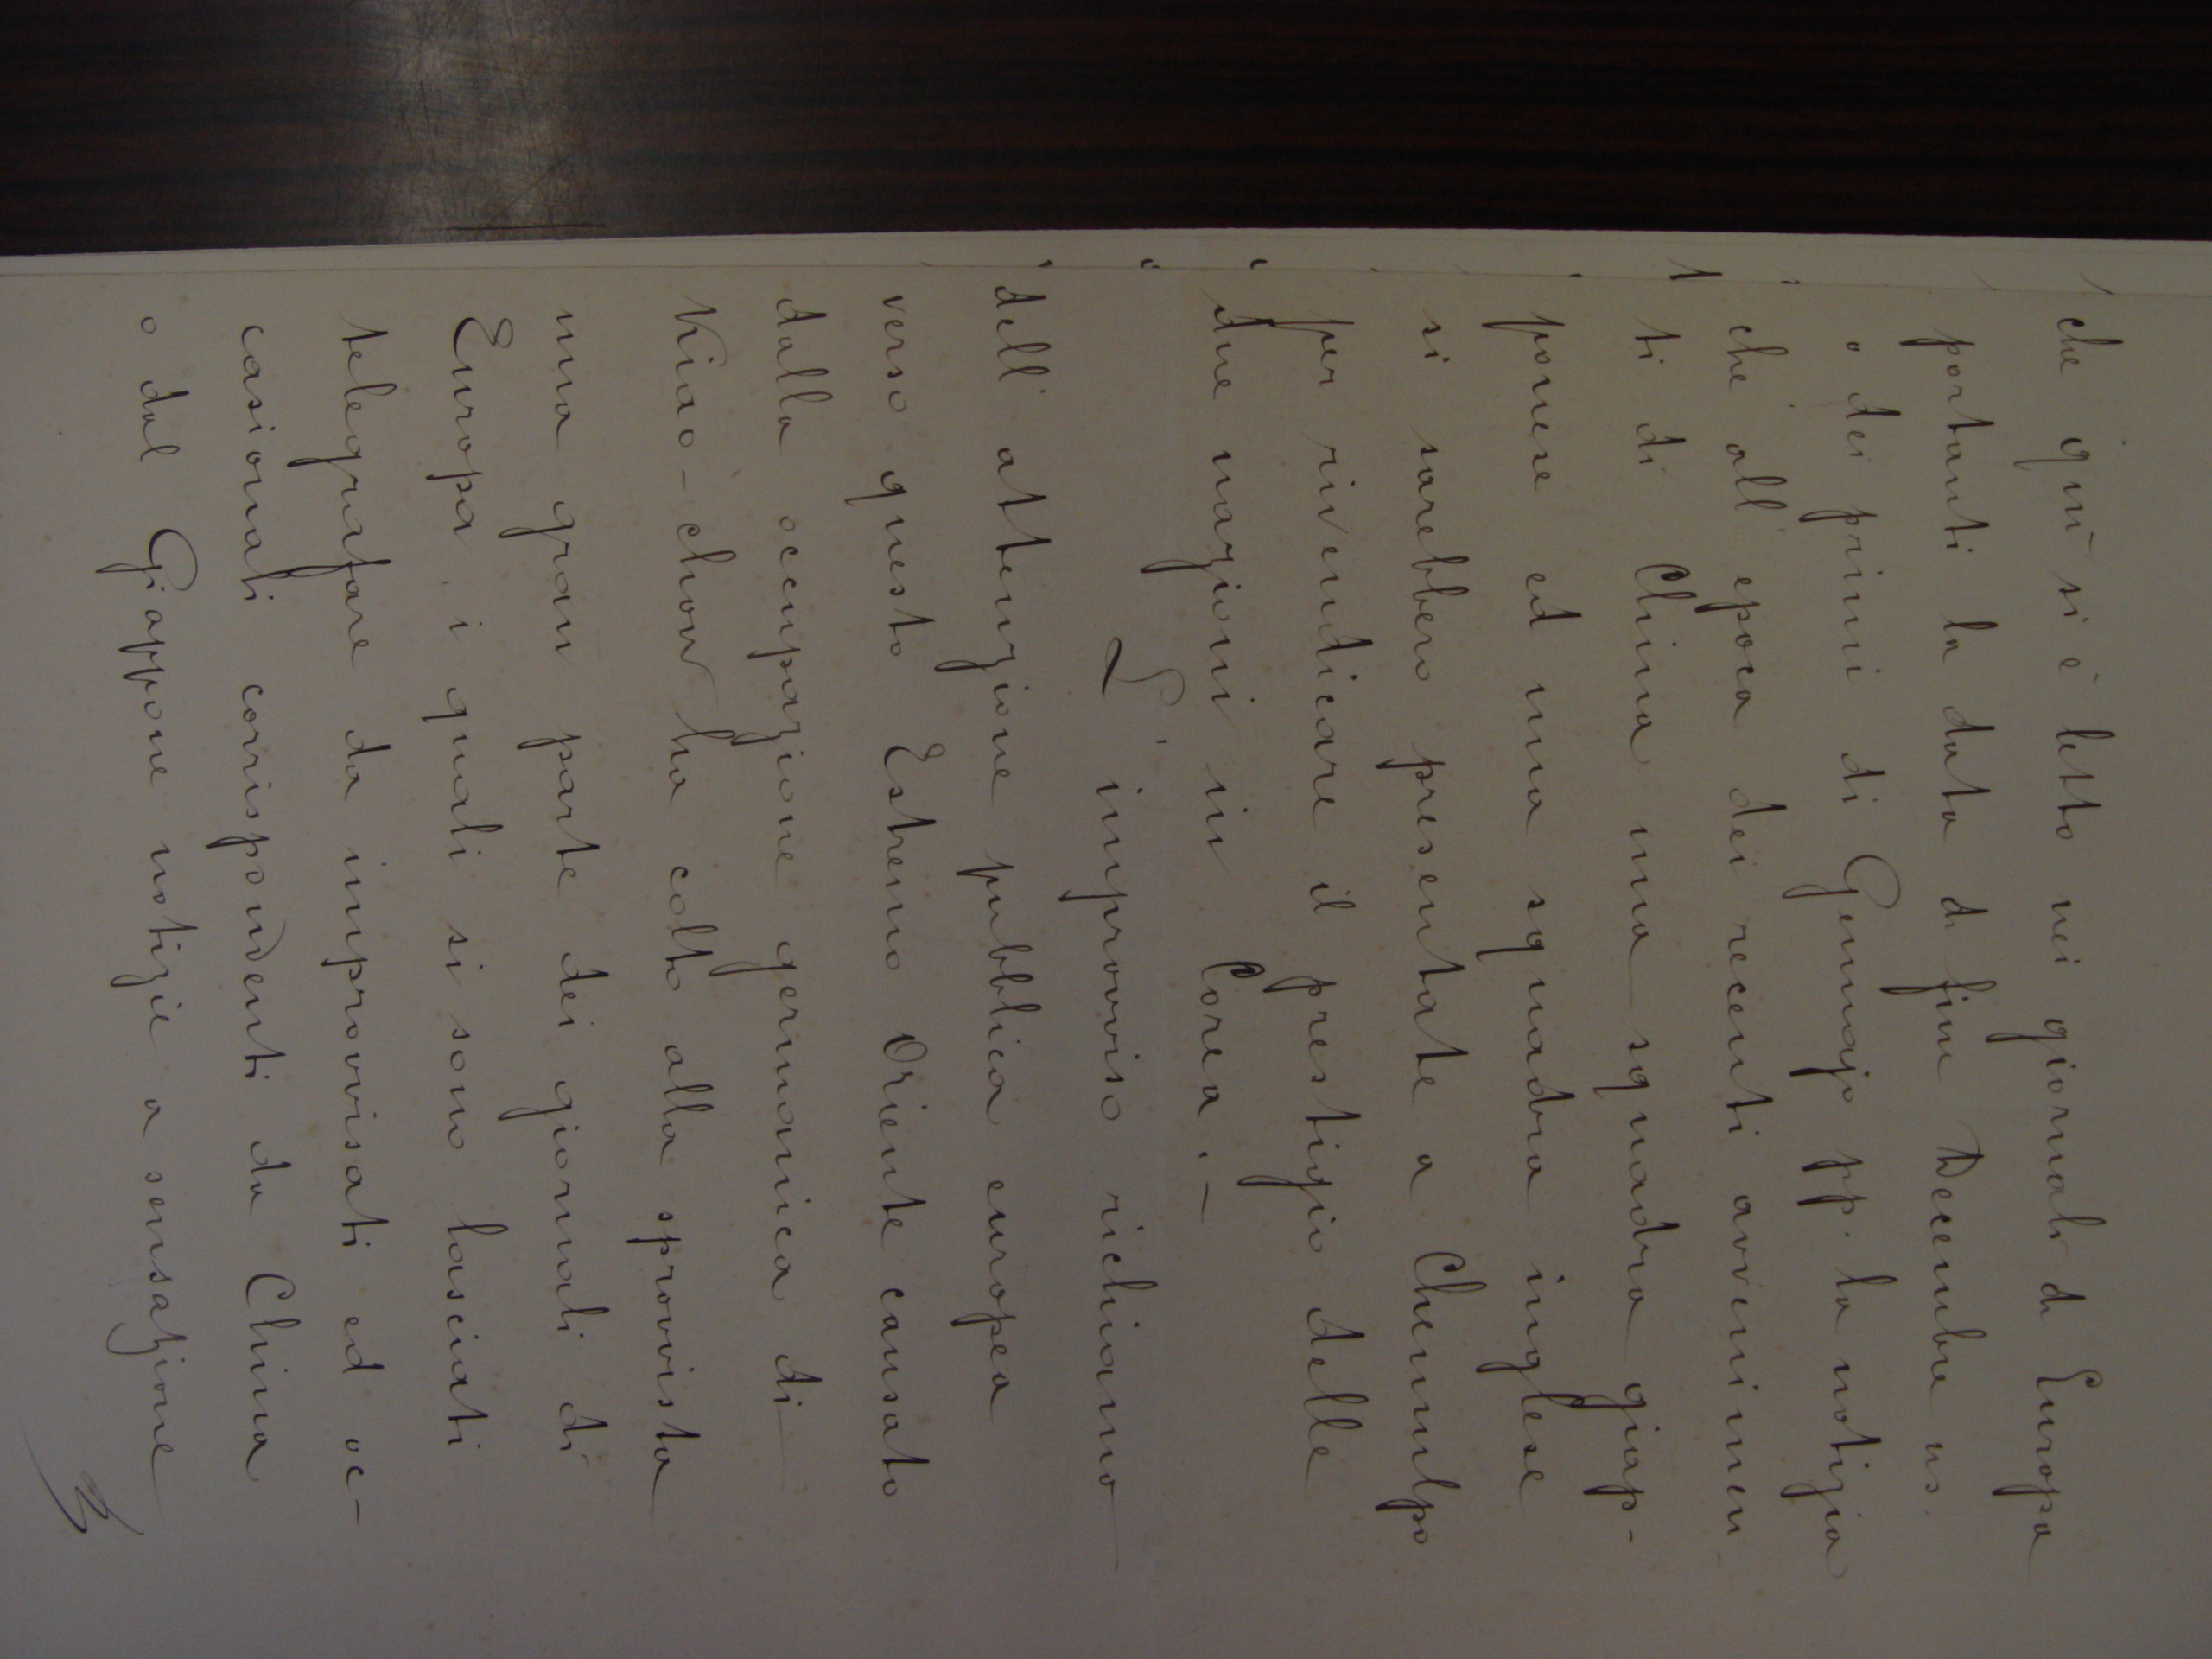 che quì si è letto nei giornali di Europa
portanti la data di fine Decembre us.
o dei primi di Gennajo pp. la notizia
che all'epoca dei recenti avvenimen-
ti di China una squadra giap-
ponese ed una squadra inglese
si sarebbero presentate a Chemulpo
per rivendicare il prestigio delle
due nazioni in Corea. -
L'improvviso richiamo
dell'attenzione pubblica europea
verso questo Estremo Oriente causato
dalla occupazione germanica di
Kiao-chow ha colto alla sprovvista
una gran parte dei giornali di
Europa i quali si sono lasciati
telegrafare da improvvisati ed oc-
casionali corrispondenti da China
o dal Giappone notizie a sensazione